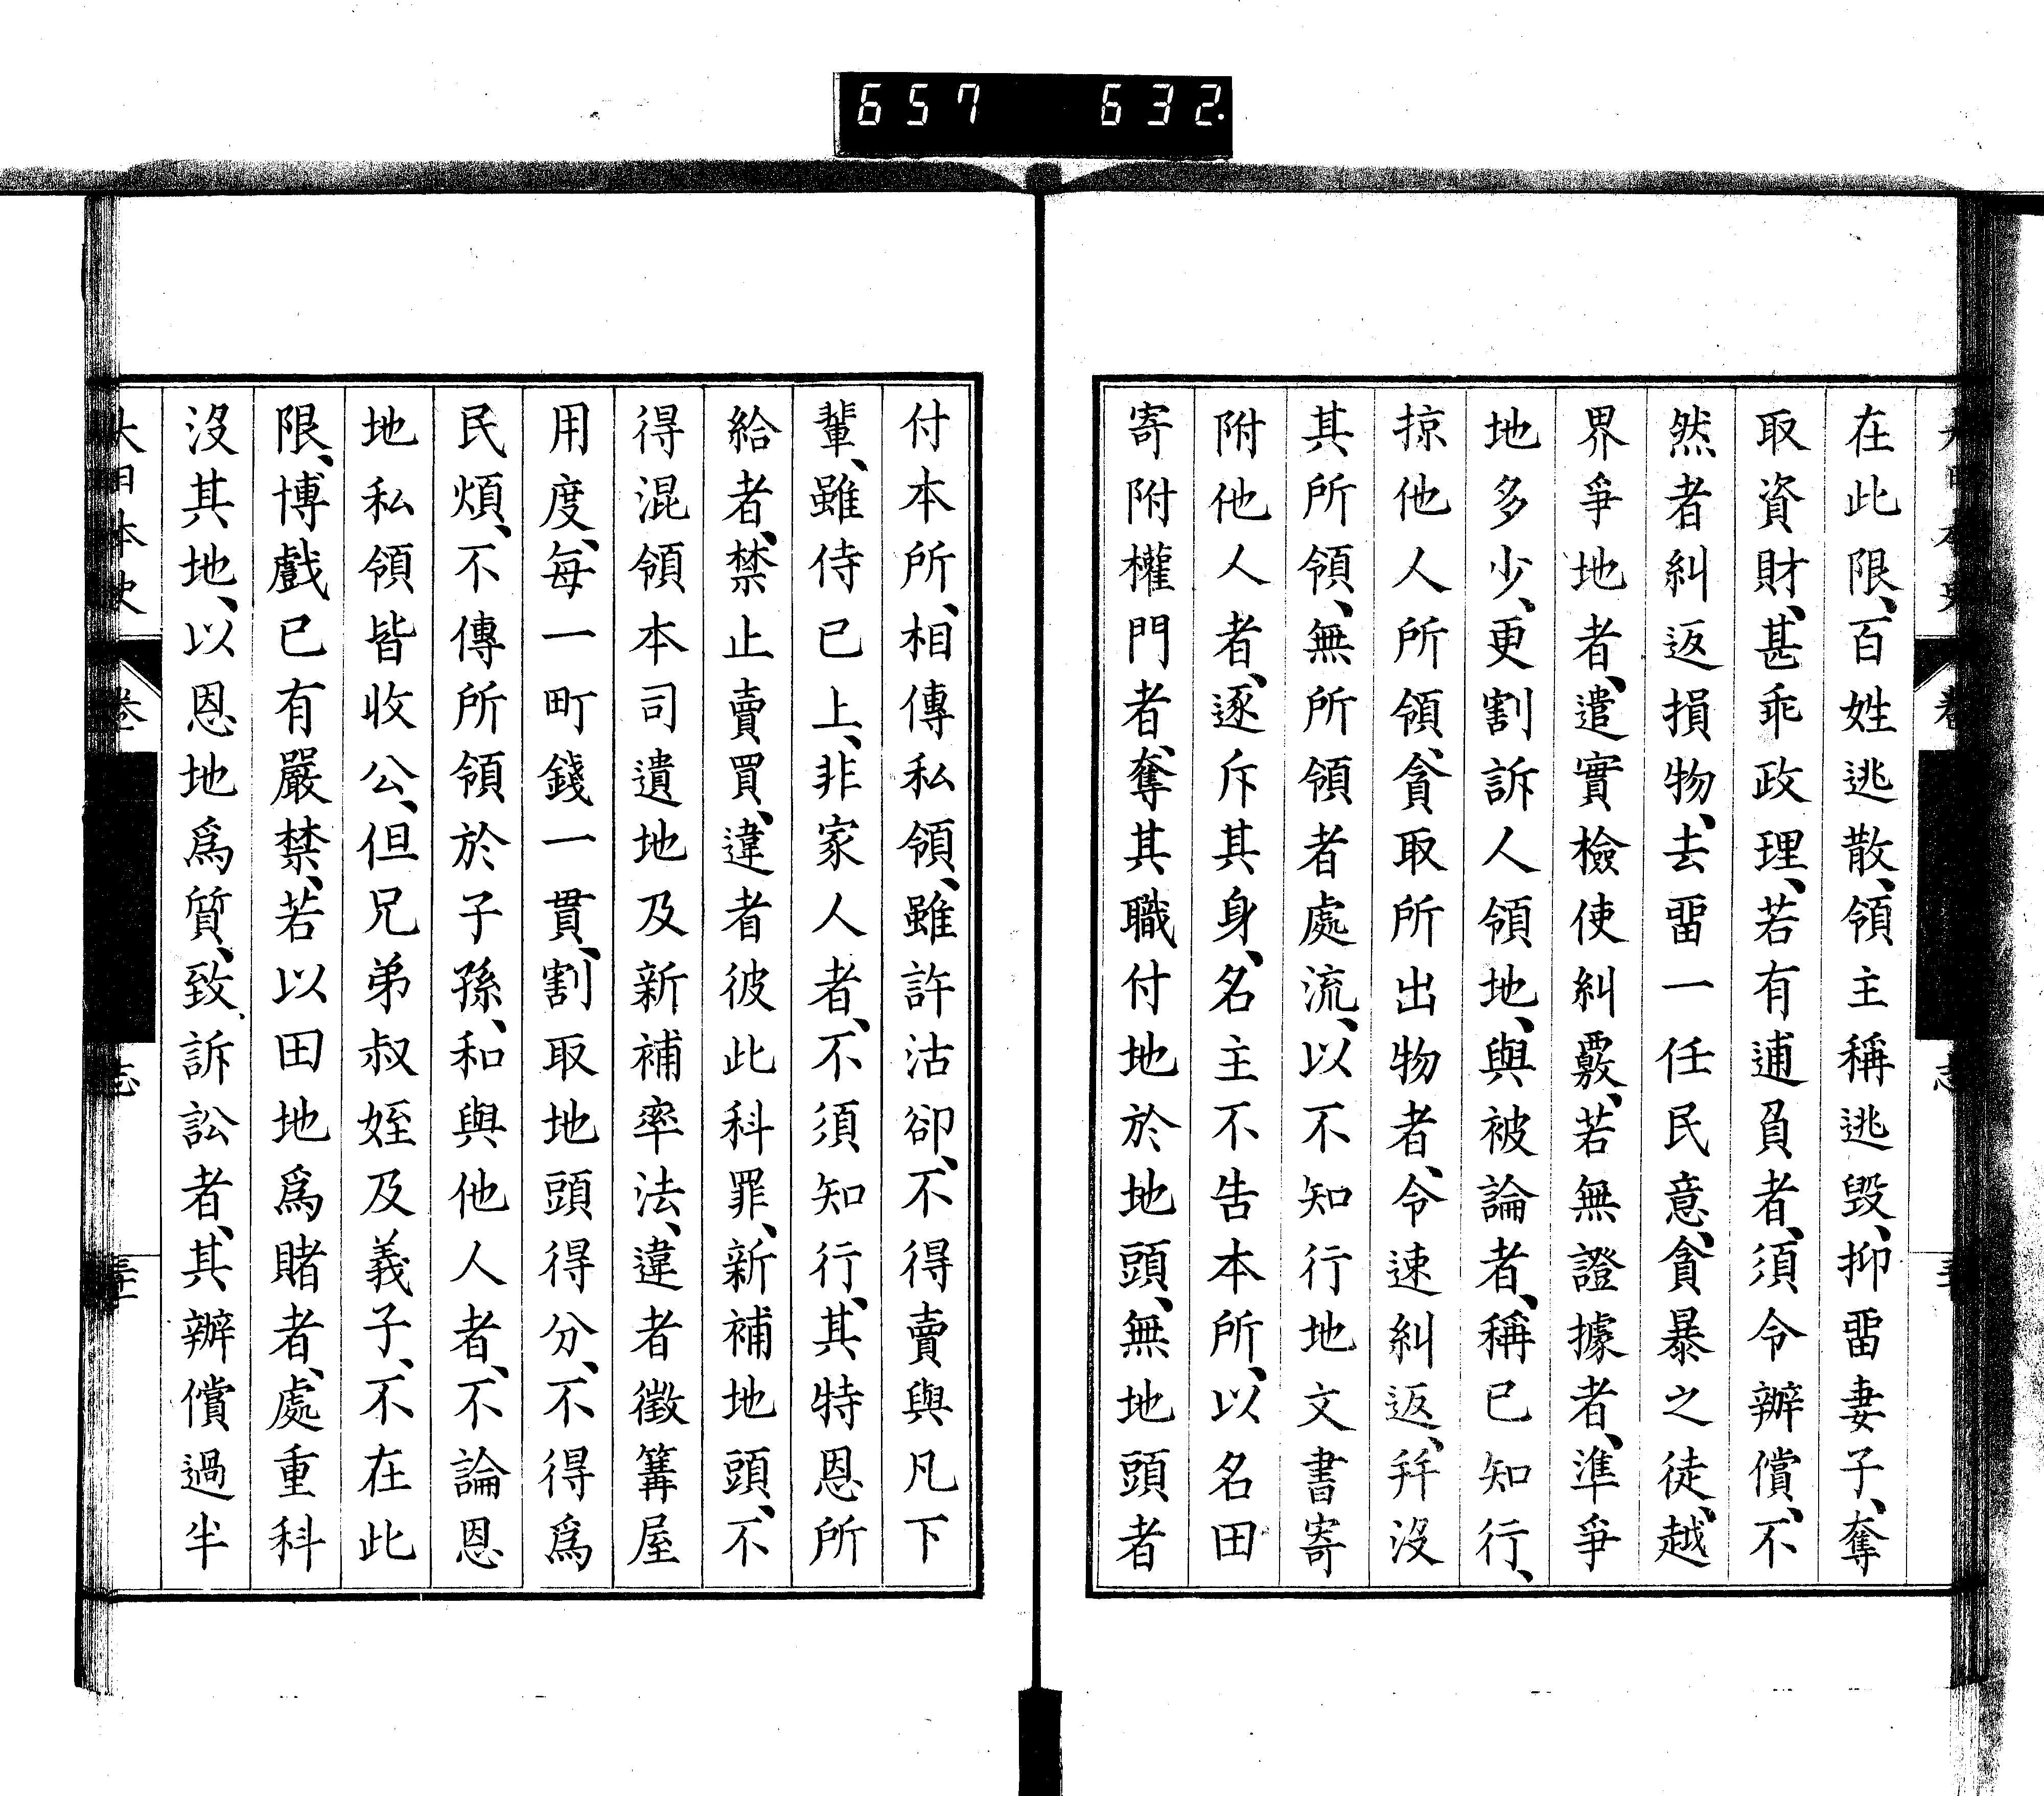 657 632
在此限、百姓逃散、領主稱逃毀、抑畱妻子、奪
取資財、甚乖政理、若有逋負者、須令辦償、不
然者糾返損物、去畱一任民意、貪暴之徒、越
界爭地者、遣實檢使糾覈、若無證據者、準爭
地多少、更割訴人領地、與被論者、稱已知行、
掠他人所領、貪取所出物者、令速糾返、幷沒
其所領、無所領者處流、以不知行地文書寄
附他人者、逐斥其身、名主不告本所、以名田
寄附權門者、奪其職付地於地頭、無地頭者
付本所、相傳私領、雖許沽卻、不得賣與凡下
輩、雖侍已上、非家人者、不須知行、其特恩所
給者、禁止賣買、違者彼此科罪、新補地頭、不
得混領本司遺地及新補率法、違者徵篝屋
用度、每一町錢一貫、割取地頭得分、不得爲
民煩、不傳所領於子孫、和與他人者、不論恩
地私領皆收公、但兄弟叔姪及義子、不在此
限、博戲已有嚴禁、若以田地爲賭者、處重科
沒其地、以恩地爲質、致訴訟者、其辦償過半